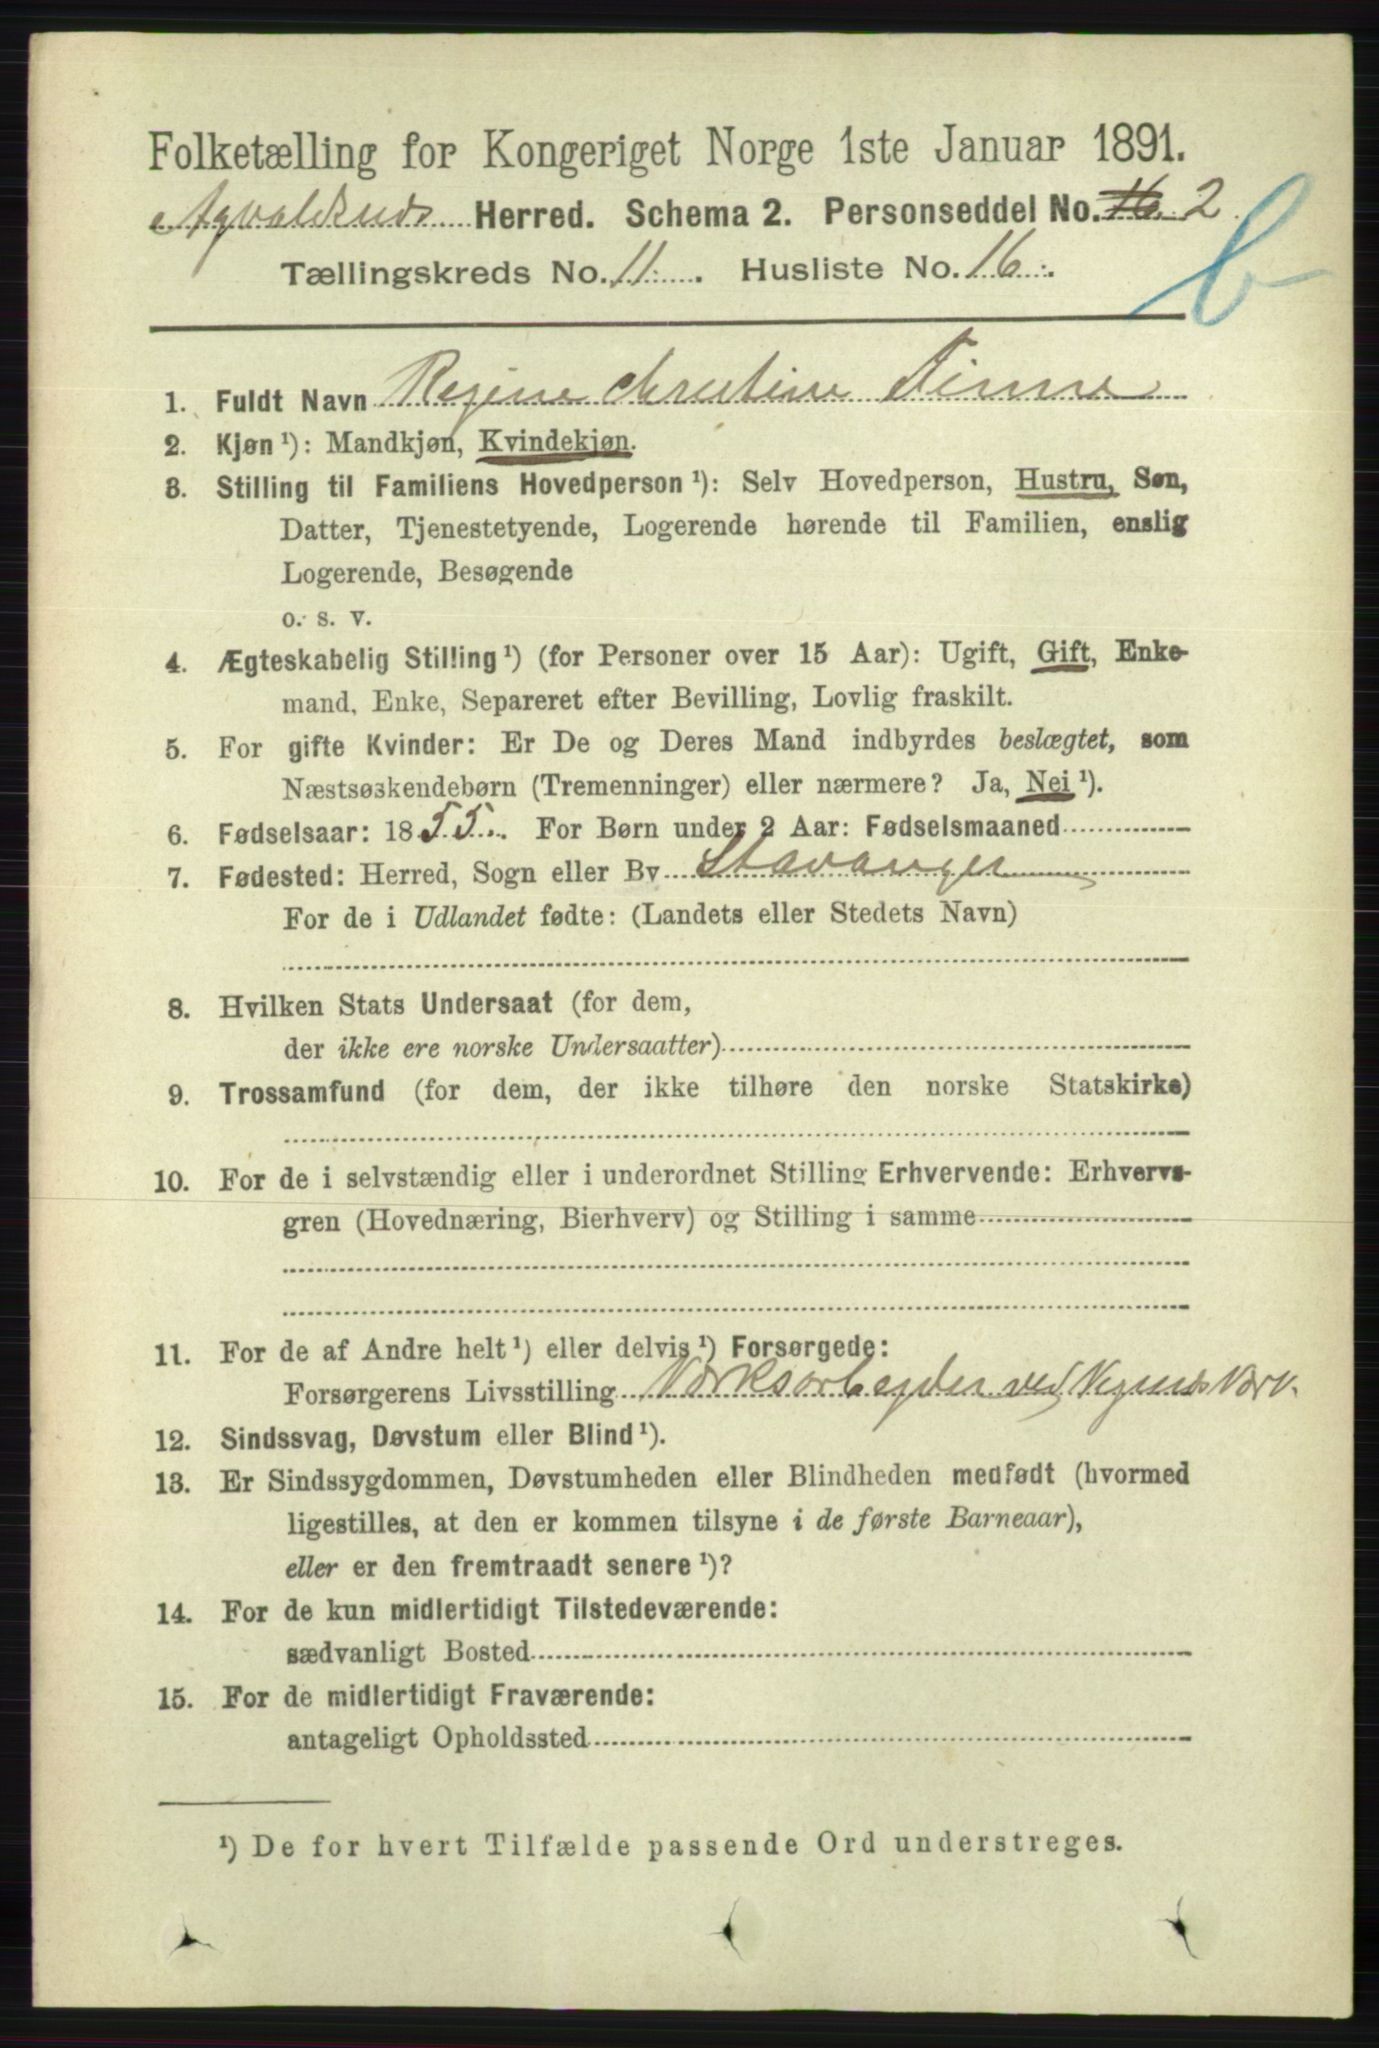 Folketælling for Kongeriget Norge 1ste Januar 1891.
Herred. Schema 2. Personseddel No. 16 2
Tællingskreds No. 11. Husliste No. 16.
b
1. Fuldt Navn Regine Christine Finne
2. Kjøn ¹): Mandkjøn, Kvindekjøn.
3. Stilling til Familiens Hovedperson ¹): Selv Hovedperson, Hustru, Søn,
Datter, Tjenestetyende, Logerende hørende til Familien, enslig
Logerende, Besøgende
o. s. v.
4. Ægteskabelig Stilling ¹) (for Personer over 15 Aar): Ugift, Gift, Enke-
mand, Enke, Separeret efter Bevilling, Lovlig fraskilt.
5. For gifte Kvinder: Er De og Deres Mand indbyrdes beslægtet, som
Næstsøskendebørn (Tremenninger) eller nærmere? Ja, Nei ¹).
6. Fødselsaar: 1855. For Børn under 2 Aar: Fødselsmaaned
7. Fødested: Herred, Sogn eller By Stavanger
For de i Udlandet fødte: (Landets eller Stedets Navn)
8. Hvilken Stats Undersaat (for dem,
der ikke ere norske Undersaatter)
9. Trossamfund (for dem, der ikke tilhøre den norske Statskirke)
10. For de i selvstændig eller i underordnet Stilling Erhvervende: Erhvervs-
gren (Hovednæring, Bierhverv) og Stilling i samme
11. For de af Andre helt ¹) eller delvis ¹) Forsørgede:
Forsørgerens Livsstilling Værksarbejder ved Vigsnes Værk.
12. Sindssvag, Døvstum eller Blind ¹).
13. Er Sindssygdommen, Døvstumheden eller Blindheden medfødt (hvormed
ligestilles, at den er kommen tilsyne i de første Barneaar),
eller er den fremtraadt senere ¹)?
14. For de kun midlertidigt Tilstedeværende:
sædvanligt Bosted
15. For de midlertidigt Fraværende:
antageligt Opholdssted
¹) De for hvert Tilfælde passende Ord understreges.